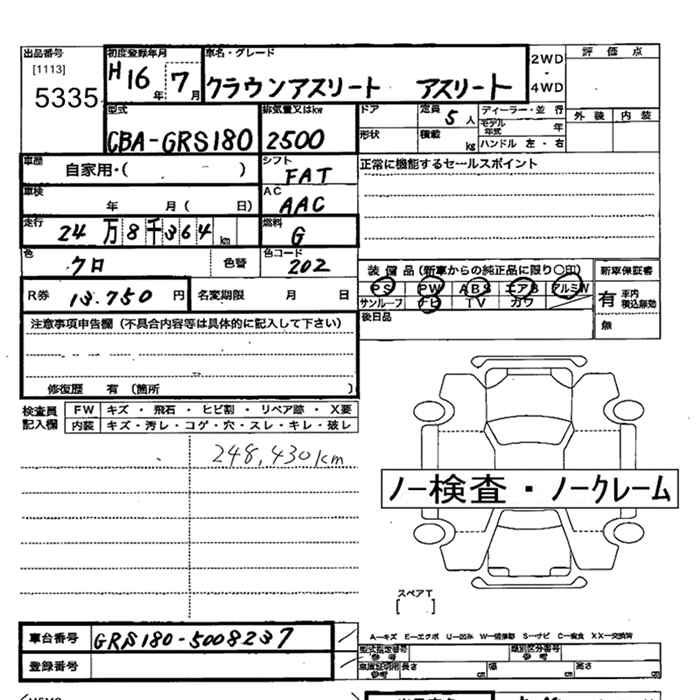 出品番号 初度登録年月 車名・グレード 2WD 評価点
[1113] H16年 7月 クラウンアスリート アスリート ・
5335 4WD
型式 排気量又はkw ドア 定員 5人 ディーラー・並行 外装 内装
CBA-GRS180 2500 形状 積載 kg モデル年式 年
ハンドル 左・右
車歴 自家用・( ) シフト FAT 正常に機能するセールスポイント
車検 年 月 ( 日) AC AAC
走行 24万8千364km 燃料 G
色 クロ 色替 色コード 202 装備品 (新車からの純正品に限り○印) 新車保証書
R券 13.750円 名変期限 月 日 PS PW ABS エアB アルミW 有 車内 積込厳効
サンルーフ ナビ TV カワ
注意事項申告欄 (不具合内容等は具体的に記入して下さい) 後日品 無
修復歴 有 (箇所 )
検査員 FW キズ ・ 飛石 ・ ヒビ割 ・ リペア跡 ・ X要
記入欄 内装 キズ・汚レ・コゲ・穴・スレ・キレ・破レ
248,430km
ノー検査・ノークレーム
スペアT
[ ]
車台番号 GRS180-5008237 A―キズ E―エクボ U―凹み W―補修跡 S―サビ C―腐食 XX―交換済
登録番号 型式指定番号 参考 類別区分番号 参考
車庫証明用 参考 長さ cm 幅 cm 高さ cm